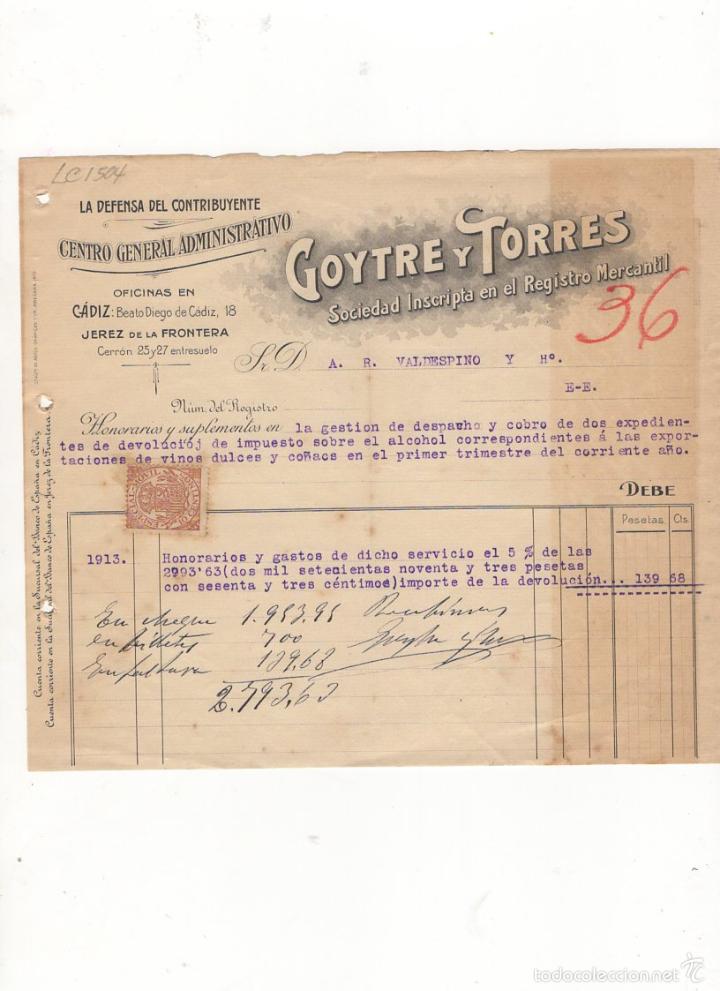 LC1504
LA DEFENSA DEL CONTRIBUYENTE
CENTRO GENERAL ADMINISTRATIVO
GOYTRE Y TORRES
Sociedad Inscripta en el Registro Mercantil
36
OFICINAS EN
CÁDIZ: Beato Diego de Cádiz, 18
JEREZ DE LA FRONTERA
Cerrón 25 y 27 entresuelo
Sr. D. A. R. VALDESPINO Y Hº.
E-E.
Núm. del Registro
Honorarios y suplementos en la gestion de despacho y cobro de dos expedien-
tes de devolúciój de impuesto sobre el alcohol correspondientes á las expor-
taciones de vinos dulces y coñacs en el primer trimestre del corriente año.
ESPECIAL MOVIL
DEBE
Pesetas Cts
1913. Honorarios y gastos de dicho servicio el 5 % de las
2993'63(dos mil setecientas noventa y tres pesetas
con sesenta y tres céntimos)importe de la devolución... 139 68
En cheque 1.953.95 Recibimos
en billetes 700
En factura 139,68
2.793,63
Cuenta corriente en la Sucursal del Banco de España en Cádiz
Cuenta corriente en la Sucursal del Banco de España en Jerez de la Frontera
todocoleccion.net